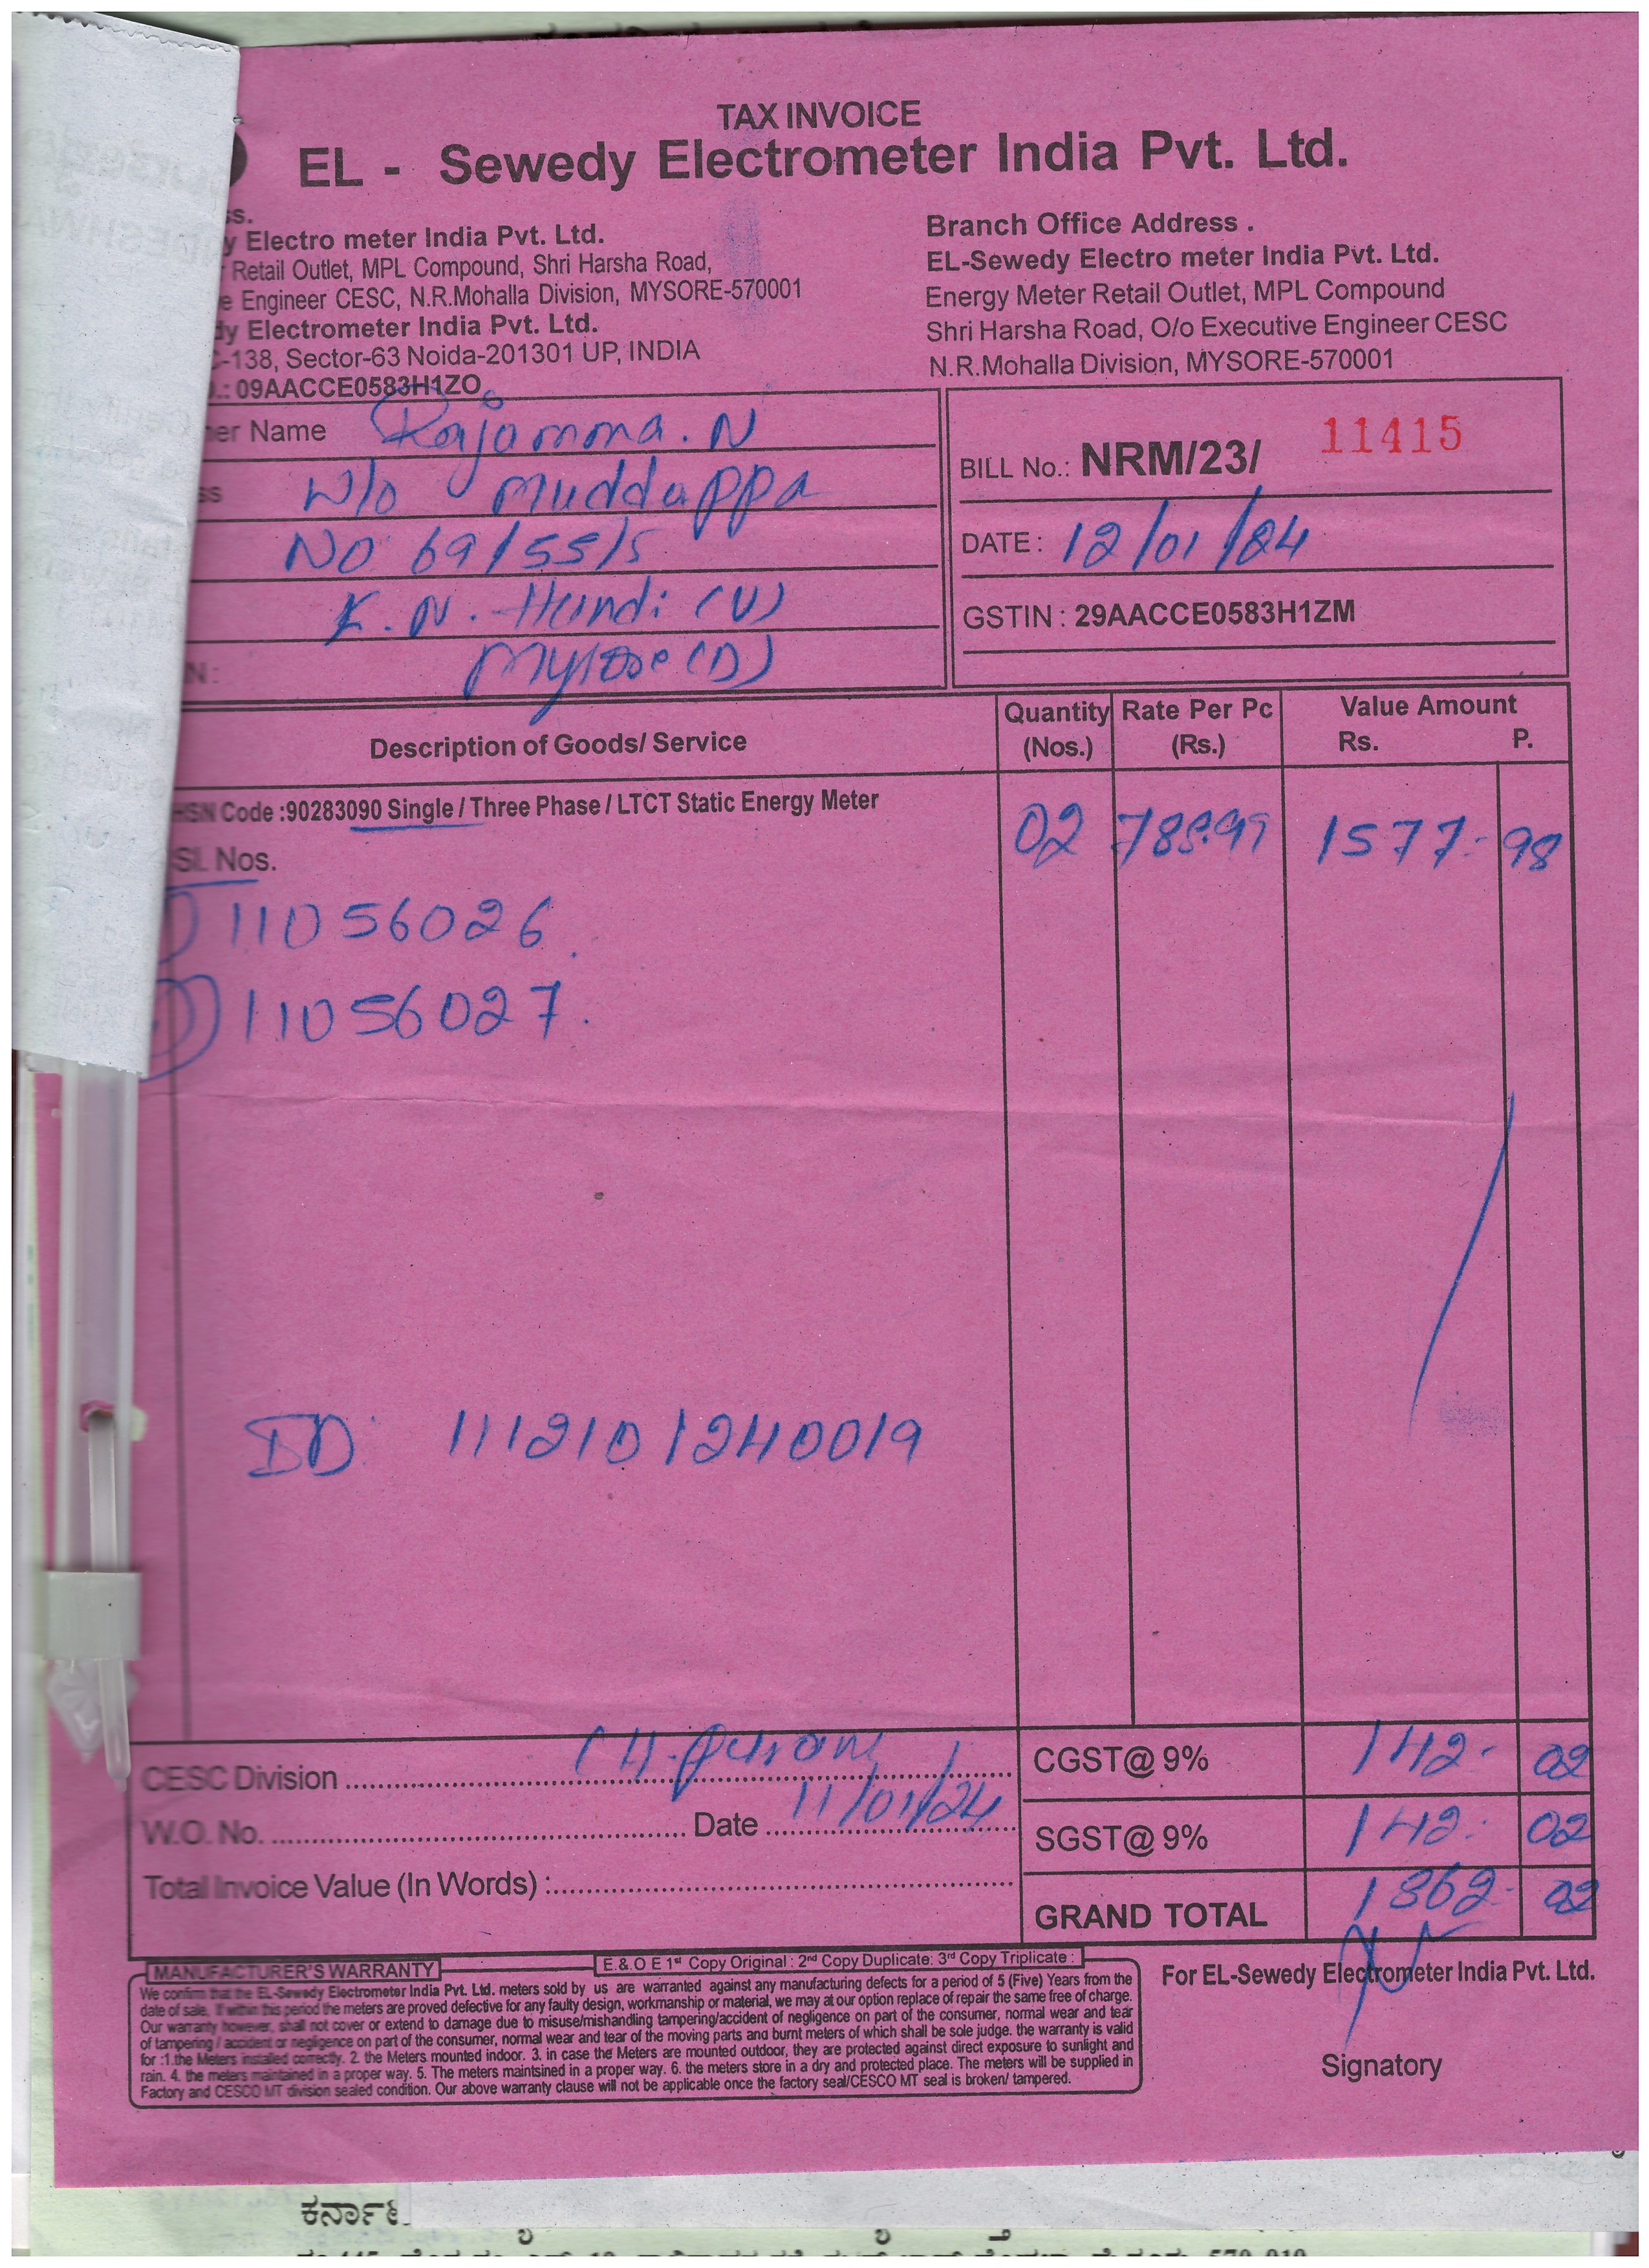 TAX INVOICE
EL - Sewedy Electrometer India Pvt. Ltd.
ss.
y Electro meter India Pvt. Ltd.
Retail Outlet, MPL Compound, Shri Harsha Road,
e Engineer CESC, N.R.Mohalla Division, MYSORE-570001
dy Electrometer India Pvt. Ltd.
C-138, Sector-63 Noida-201301 UP, INDIA
.: 09AACCE0583H1ZO
Branch Office Address .
EL-Sewedy Electro meter India Pvt. Ltd.
Energy Meter Retail Outlet, MPL Compound
Shri Harsha Road, O/o Executive Engineer CESC
N.R.Mohalla Division, MYSORE-570001
er Name Rajamma. N
ss W/o Muddappa
No 69/55/5
K. N. Hundi (V)
N : Mysore (D)
BILL No.: NRM/23/ 11415
DATE : 12/01/24
GSTIN : 29AACCE0583H1ZM
Description of Goods/ Service Quantity (Nos.) Rate Per Pc (Rs.) Value Amount Rs. P.
HSN Code :90283090 Single / Three Phase / LTCT Static Energy Meter 02 788.99 1577- 98
Sl. Nos.
) 11056026.
) 11056027.
ID: 1112101240019
CESC Division
CGST@ 9% 142- 02
W.O. No. Date 11/01/24
SGST@ 9% 142- 02
Total Invoice Value (In Words) :
GRAND TOTAL 1862- 02
E.& O E 1st Copy Original : 2nd Copy Duplicate: 3rd Copy Triplicate :
MANUFACTURER'S WARRANTY
We confirm that the EL-Sewedy Electrometer India Pvt. Ltd. meters sold by us are warranted against any manufacturing defects for a period of 5 (Five) Years from the
date of sale. If within this period the meters are proved defective for any faulty design, workmanship or material, we may at our option replace of repair the same free of charge.
Our warranty however, shall not cover or extend to damage due to misuse/mishandling tampering/accident of negligence on part of the consumer, normal wear and tear
of tampering / accident or negligence on part of the consumer, normal wear and tear of the moving parts and burnt meters of which shall be sole judge. the warranty is valid
for :1.the Meters installed correctly. 2. the Meters mounted indoor. 3. in case the Meters are mounted outdoor, they are protected against direct exposure to sunlight and
rain. 4. the meters maintained in a proper way. 5. The meters maintsined in a proper way. 6. the meters store in a dry and protected place. The meters will be supplied in
Factory and CESCO MT division sealed condition. Our above warranty clause will not be applicable once the factory seal/CESCO MT seal is broken/ tampered.
For EL-Sewedy Electrometer India Pvt. Ltd.
Signatory